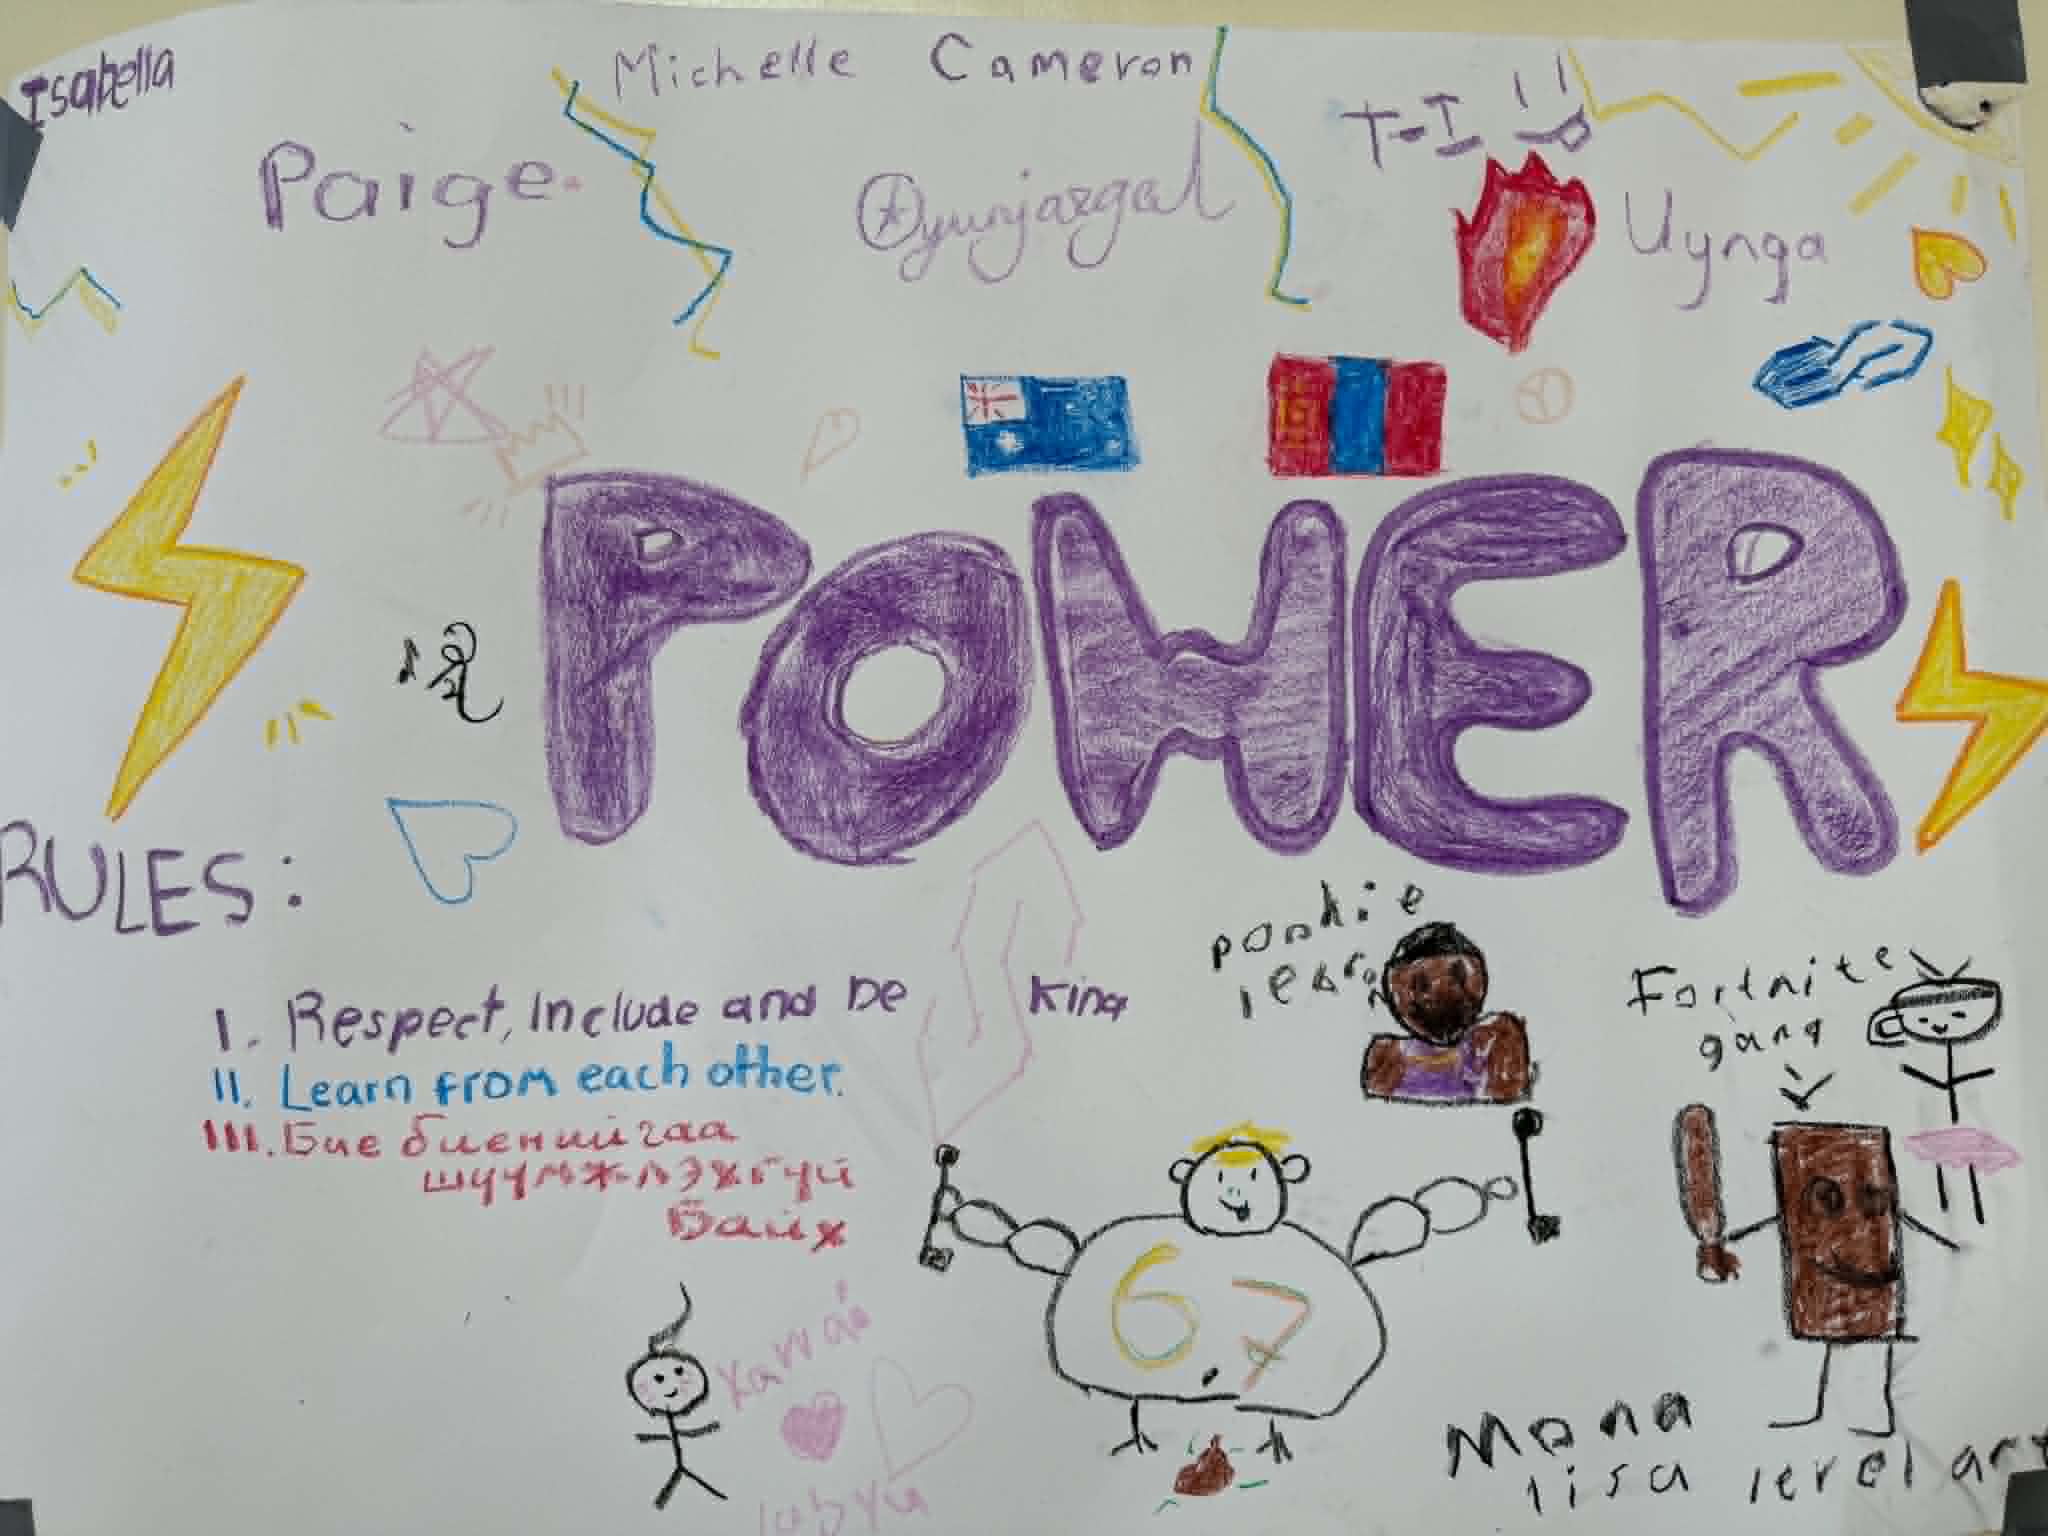 Isabella
Michelle Cameron
Paige
Oyunjargal
T-I
Uynga
POWER
RULES:
I. Respect, Include and be kind
II. Learn from each other.
III. Бие биенийгаа
шүүмжлэхгүй
Байх
Fortnite
gang
67
Mona
lisa level art